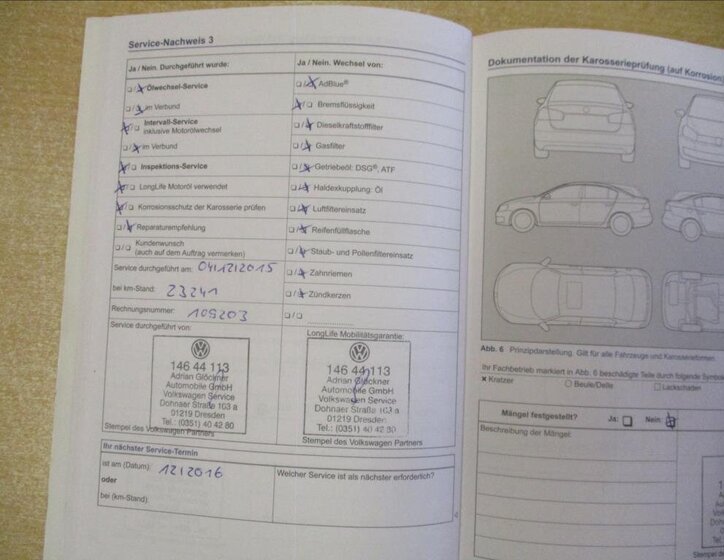 Service-Nachweis 3
Ja / Nein. Durchgeführt wurde:
Ölwechsel-Service
im Verbund
Intervall-Service
inklusive Motorölwechsel
im Verbund
Inspektions-Service
LongLife Motoröl verwendet
Korrosionsschutz der Karosserie prüfen
Reparaturempfehlung
Kundenwunsch
(auch auf dem Auftrag vermerken)
Service durchgeführt am: 04/12/2015
bei km-Stand: 23241
Rechnungsnummer: 109203
Service durchgeführt von:
146 44 113
Adrian Glöckner
Automobile GmbH
Volkswagen Service
Dohnaer Straße 103 a
01219 Dresden
Tel.: (0351) 40 42 80
Stempel des Volkswagen Partners
Ja / Nein. Wechsel von:
AdBlue®
Bremsflüssigkeit
Dieselkraftstofffilter
Gasfilter
Getriebeöl: DSG®, ATF
Haldexkupplung: Öl
Luftfiltereinsatz
Reifenfüllflasche
Staub- und Pollenfiltereinsatz
Zahnriemen
Zündkerzen
LongLife Mobilitätsgarantie:
146 44 113
Adrian Glöckner
Automobile GmbH
Volkswagen Service
Dohnaer Straße 103 a
01219 Dresden
Tel.: (0351) 40 42 80
Stempel des Volkswagen Partners
Ihr nächster Service-Termin
ist am (Datum): 12/2016
oder
bei (km-Stand):
Welcher Service ist als nächster erforderlich?
Dokumentation der Karosserieprüfung (auf Korrosion
Abb. 6 Prinzipdarstellung. Gilt für alle Fahrzeuge und Karosserieformen.
Ihr Fachbetrieb markiert in Abb. 6 beschädigte Teile durch folgende Symbole
× Kratzer
Beule/Delle
Lackschaden
Mängel festgestellt? Ja: Nein:
Beschreibung der Mängel: